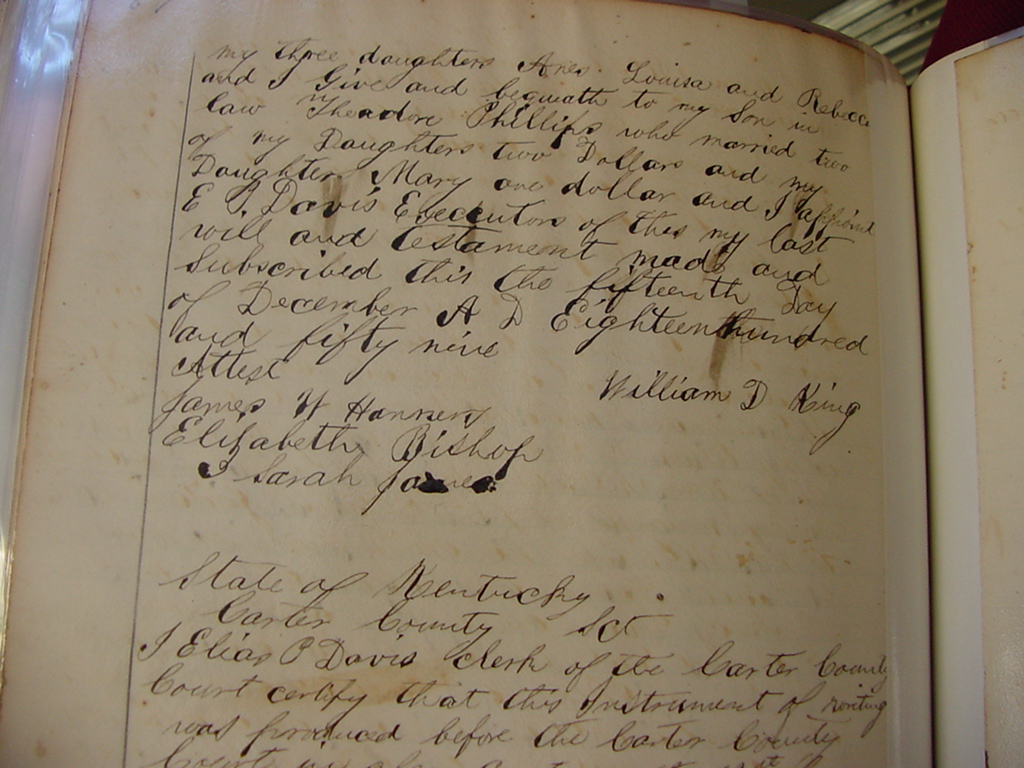 my three daughters Anes. Louisa and Rebecca
and I Give and bequath to my Son in
law Theadore Phillips who married two
of my Daughters two Dollars and my
Daughter Mary one dollar and I appoint
E P Davis Executors of this my last
will and testament made and
Subscribed this the fifteenth Day
of December A D Eighteen hundred
and fifty nine
Attest
William D King
James W Hannery
Elizabeth Bishop
Sarah James
State of Kentucky
Carter County Sct
I Elias P Davis Clerk of the Carter County
Court certify that this Instrument of writing
was produced before the Carter County